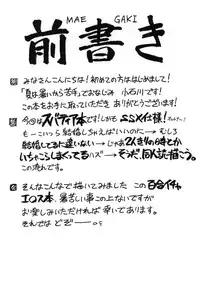 MAE GAKI
前書き
みなさんこんにちは！初めての方ははじめまして！
「夏は暑いから苦手」でおなじみ 小石川です！
この本をお手に取っていただき ありがとうございます！
今回はスパフィア本です！しかもSSX仕様！
もーこいつら結婚しちゃえばいいのに→むしろ
結婚してるに違いない→じゃあ2人きりの時とか
いちゃこらしまくってるハズ→そうだ、同人誌描こう。
この流れです。
そんなこんなで描いてみました この百合イチャ
エロス本、暑苦しい事この上ないですが
お楽しみいただければ 幸いであります。
それでは どぞー